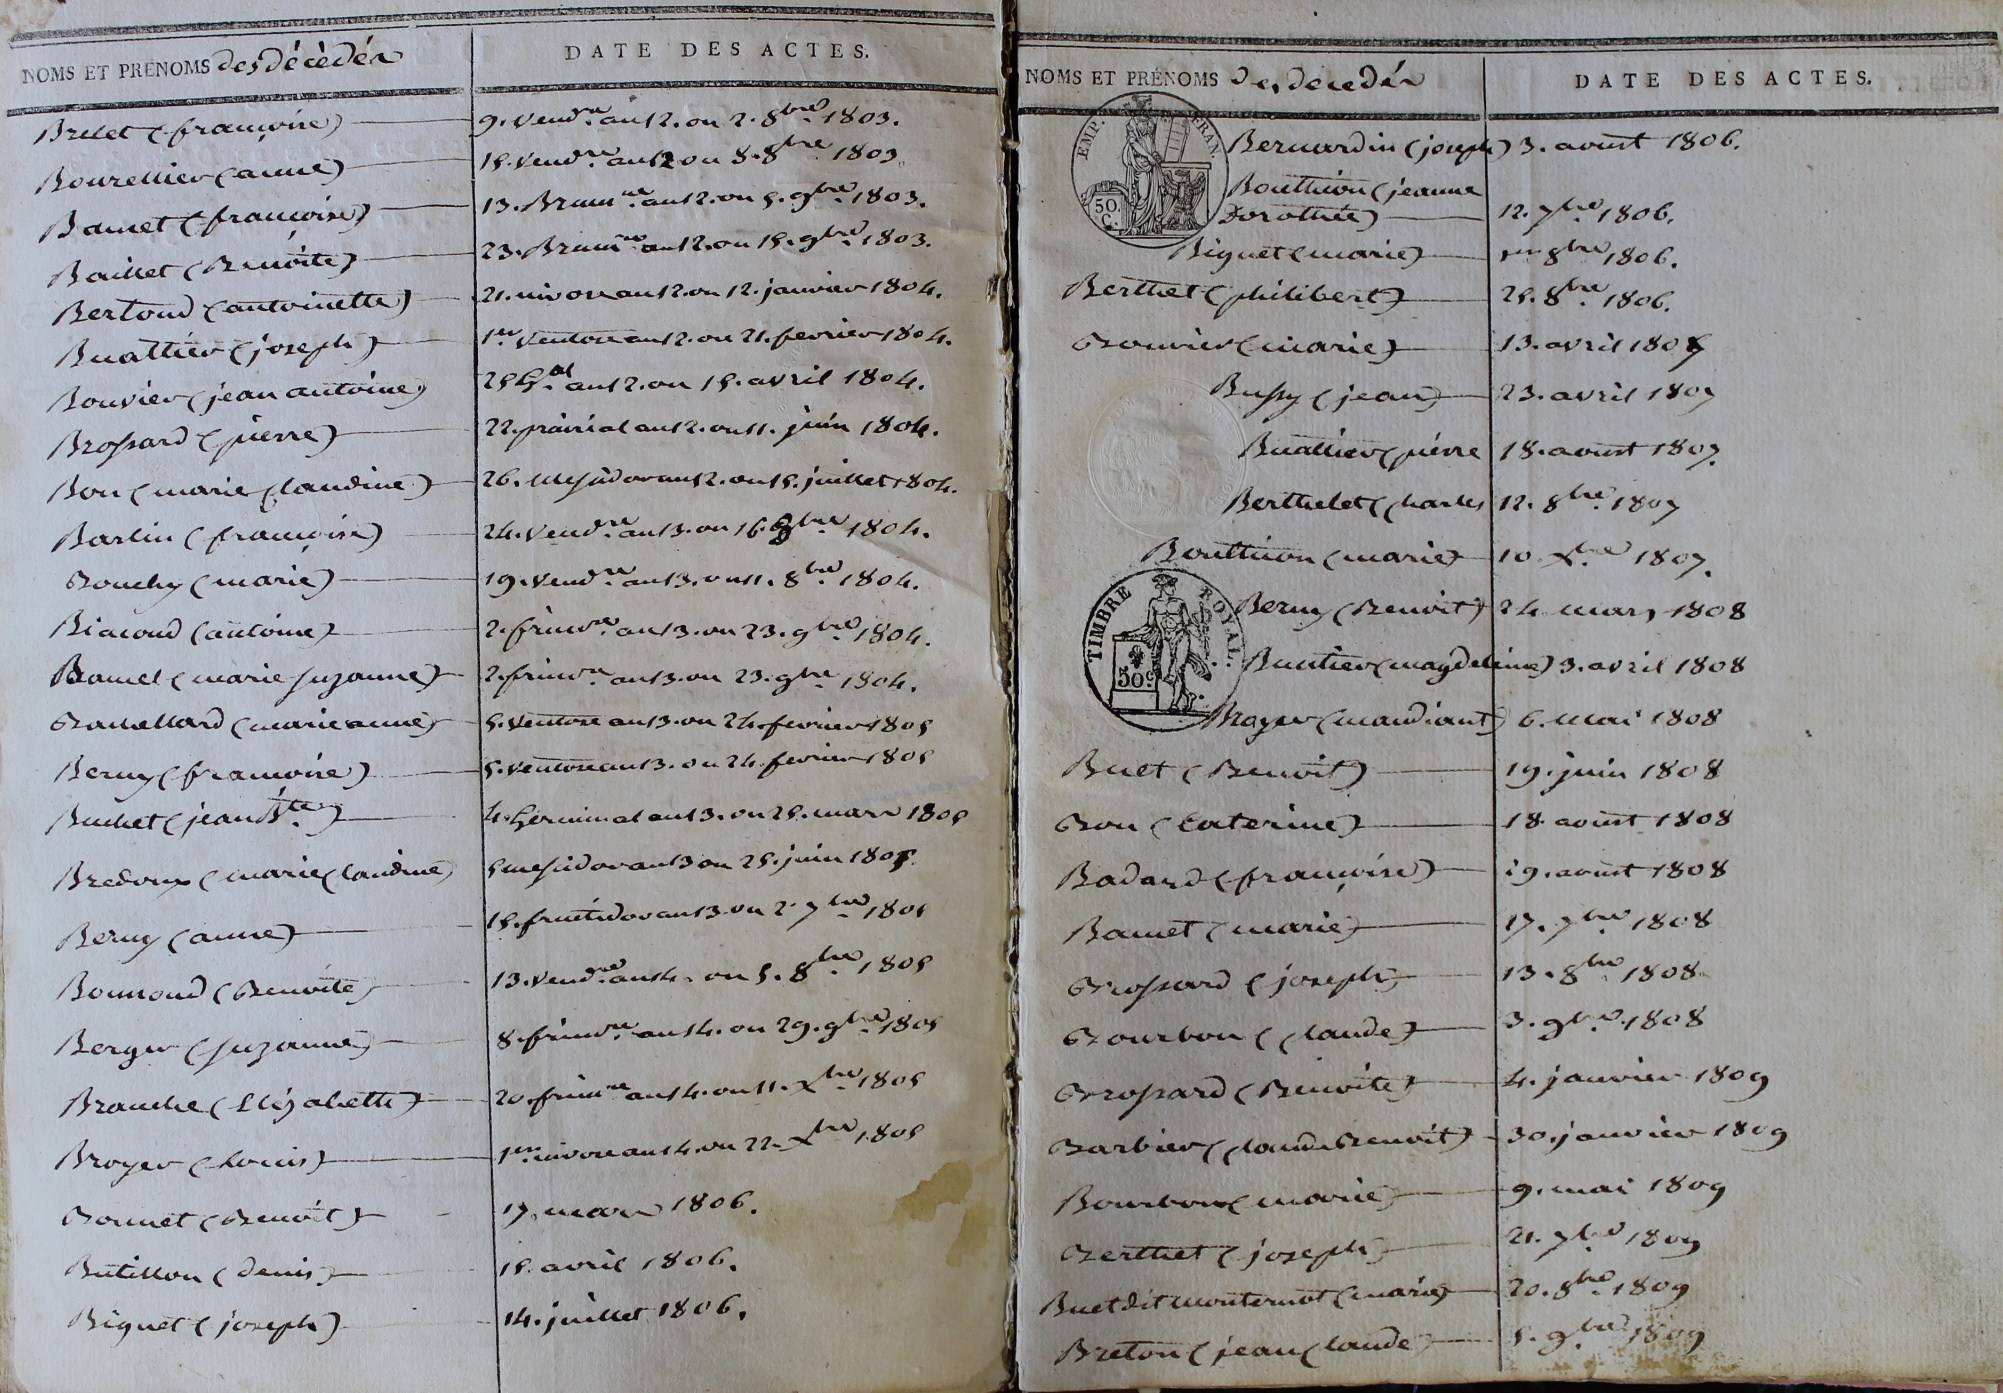 NOMS ET PRÉNOMS des décèdés DATE DES ACTES.
Brelet (françoise) 9. vend.re an 12. ou 2. 8bre 1803.
Bourellier (anne) 15. vend.re an 12 ou 8. 8bre 1803.
Bamet (françoise) 13. Brum.re an 12. ou 5. 9bre 1803.
Baillet (Benoite) 23. Brum.re an 12. ou 15. 9bre 1803.
Bertoud (antoinette) 21. nivose an 12. ou 12. janvier 1804.
Buattier (joseph) 1er ventose an 12. ou 21. fevrier 1804.
Bouvier (jean antoine) 25 G.al an 12. ou 15. avril 1804.
Brossard (pierre) 22. prairial an 12. ou 11. juin 1804.
Bon (marie claudine) 26. messidor an 12. ou 15. juillet 1804.
Barlin (françoise) 24. vend.re an 13. ou 16. 8bre 1804.
Bouchy (marie) 19. vend.re an 13. ou 11. 8bre 1804.
Biacoud (antoine) 2. frim.re an 13. ou 23. 9bre 1804.
Bamet (marie suzanne) 2. frim.re an 13. ou 23. 9bre 1804.
Bamellard (marie anne) 5. ventose an 13. ou 24. fevrier 1805
Berny (françoise) 5. ventose an 13. ou 24. fevrier 1805
Buchet (jean Bte) 4. Germinal an 13. ou 25. mars 1805
Bredoux (marie claudine) 5 messidor an 13 ou 25. juin 1805.
Berny (anne) 15. fructidor an 13 ou 2. 7bre 1805
Bonnoud (Benoite) 13. vend.re an 14. ou 5. 8bre 1805
Berger (suzanne) 8. frim.re an 14. ou 29. 9bre 1805
Branche (Elizabette) 20. frim.re an 14. ou 11. Xbre 1805
Broyer (Louis) 1er nivose an 14. ou 22. Xbre 1805
Bonnet (Benoit) 17. mars 1806.
Butillon (denis) 15. avril 1806.
Biguet (joseph) 14. juillet 1806.
NOMS ET PRÉNOMS des decedés DATE DES ACTES.
EMP. FRAN.
50.
C.
Bernardin (joseph) 3. aoust 1806.
Bouthion (jeanne
Dorothée) 12. 7bre 1806.
Biguet (marie) 1er 8bre 1806.
Berthet (philibert) 25. 8bre 1806.
Bouvier (marie) 13. avril 1807
Bussy (jean) 23. avril 1807
Buattier (pierre 18. aoust 1807.
Berthelet (charles 12. 8bre 1807
Bouthion (marie) 10. Xbre 1807.
TIMBRE ROYAL.
50c
Berny (Benoit) 24 mars 1808
Buattier (magdeleine) 3. avril 1808
Broyer (mandiant) 6. mai 1808
Buet (Benoit) 19. juin 1808
Bon (Caterine) 18. aoust 1808
Badard (françoise) 19. aoust 1808
Bamet (marie) 17. 7bre 1808
Brossard (joseph) 13. 8bre 1808
Bourbon (claude) 3. 9bre 1808
Brossard (Benoite) 4. janvier 1809
Barbier (claude Benoit) 30. janvier 1809
Bourbon (marie) 9. mai 1809
Berthet (joseph) 21. 7bre 1809
Buet dit monternot (marie) 20. 8bre 1809
Breton (jean claude) 5. 9bre 1809